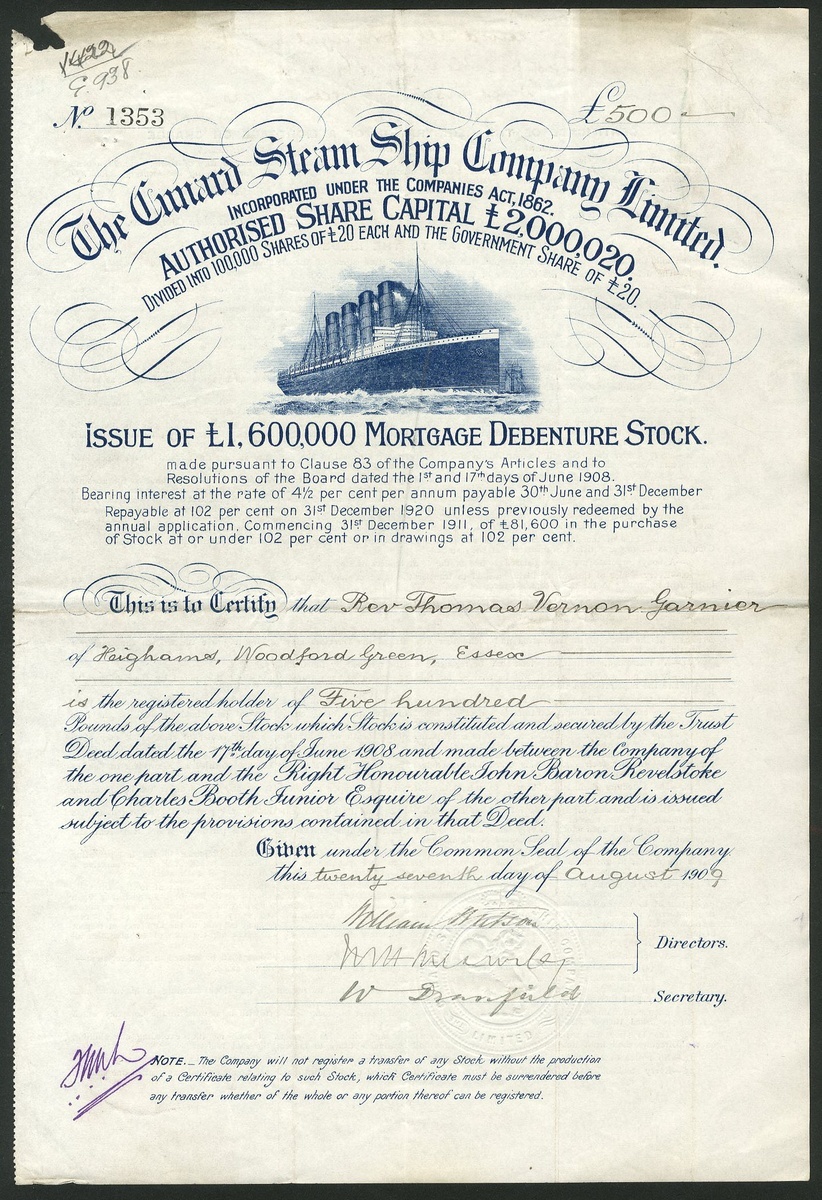 G. 938
No. 1353
£500
The Cunard Steam Ship Company Limited.
INCORPORATED UNDER THE COMPANIES ACT, 1862.
AUTHORISED SHARE CAPITAL £2,000,020.
DIVIDED INTO 100,000 SHARES OF £20 EACH AND THE GOVERNMENT SHARE OF £20.
ISSUE OF £1,600,000 MORTGAGE DEBENTURE STOCK.
made pursuant to Clause 83 of the Company's Articles and to
Resolutions of the Board dated the 1st and 17th days of June 1908.
Bearing interest at the rate of 4½ per cent per annum payable 30th June and 31st December
Repayable at 102 per cent on 31st December 1920 unless previously redeemed by the
annual application, Commencing 31st December 1911, of £81,600 in the purchase
of Stock at or under 102 per cent or in drawings at 102 per cent.
This is to Certify that Rev Thomas Vernon Garnier
of Heighams, Woodford Green, Essex
is the registered holder of Five hundred
Pounds of the above Stock which Stock is constituted and secured by the Trust
Deed dated the 17th day of June 1908 and made between the Company of
the one part and the Right Honourable John Baron Revelstoke
and Charles Booth Junior Esquire of the other part and is issued
subject to the provisions contained in that Deed.
Given under the Common Seal of the Company
this twenty seventh day of August 1909
William Watson
Directors.
W Dranfield
Secretary.
LIMITED
NOTE._ The Company will not register a transfer of any Stock without the production
of a Certificate relating to such Stock, which Certificate must be surrendered before
any transfer whether of the whole or any portion thereof can be registered.